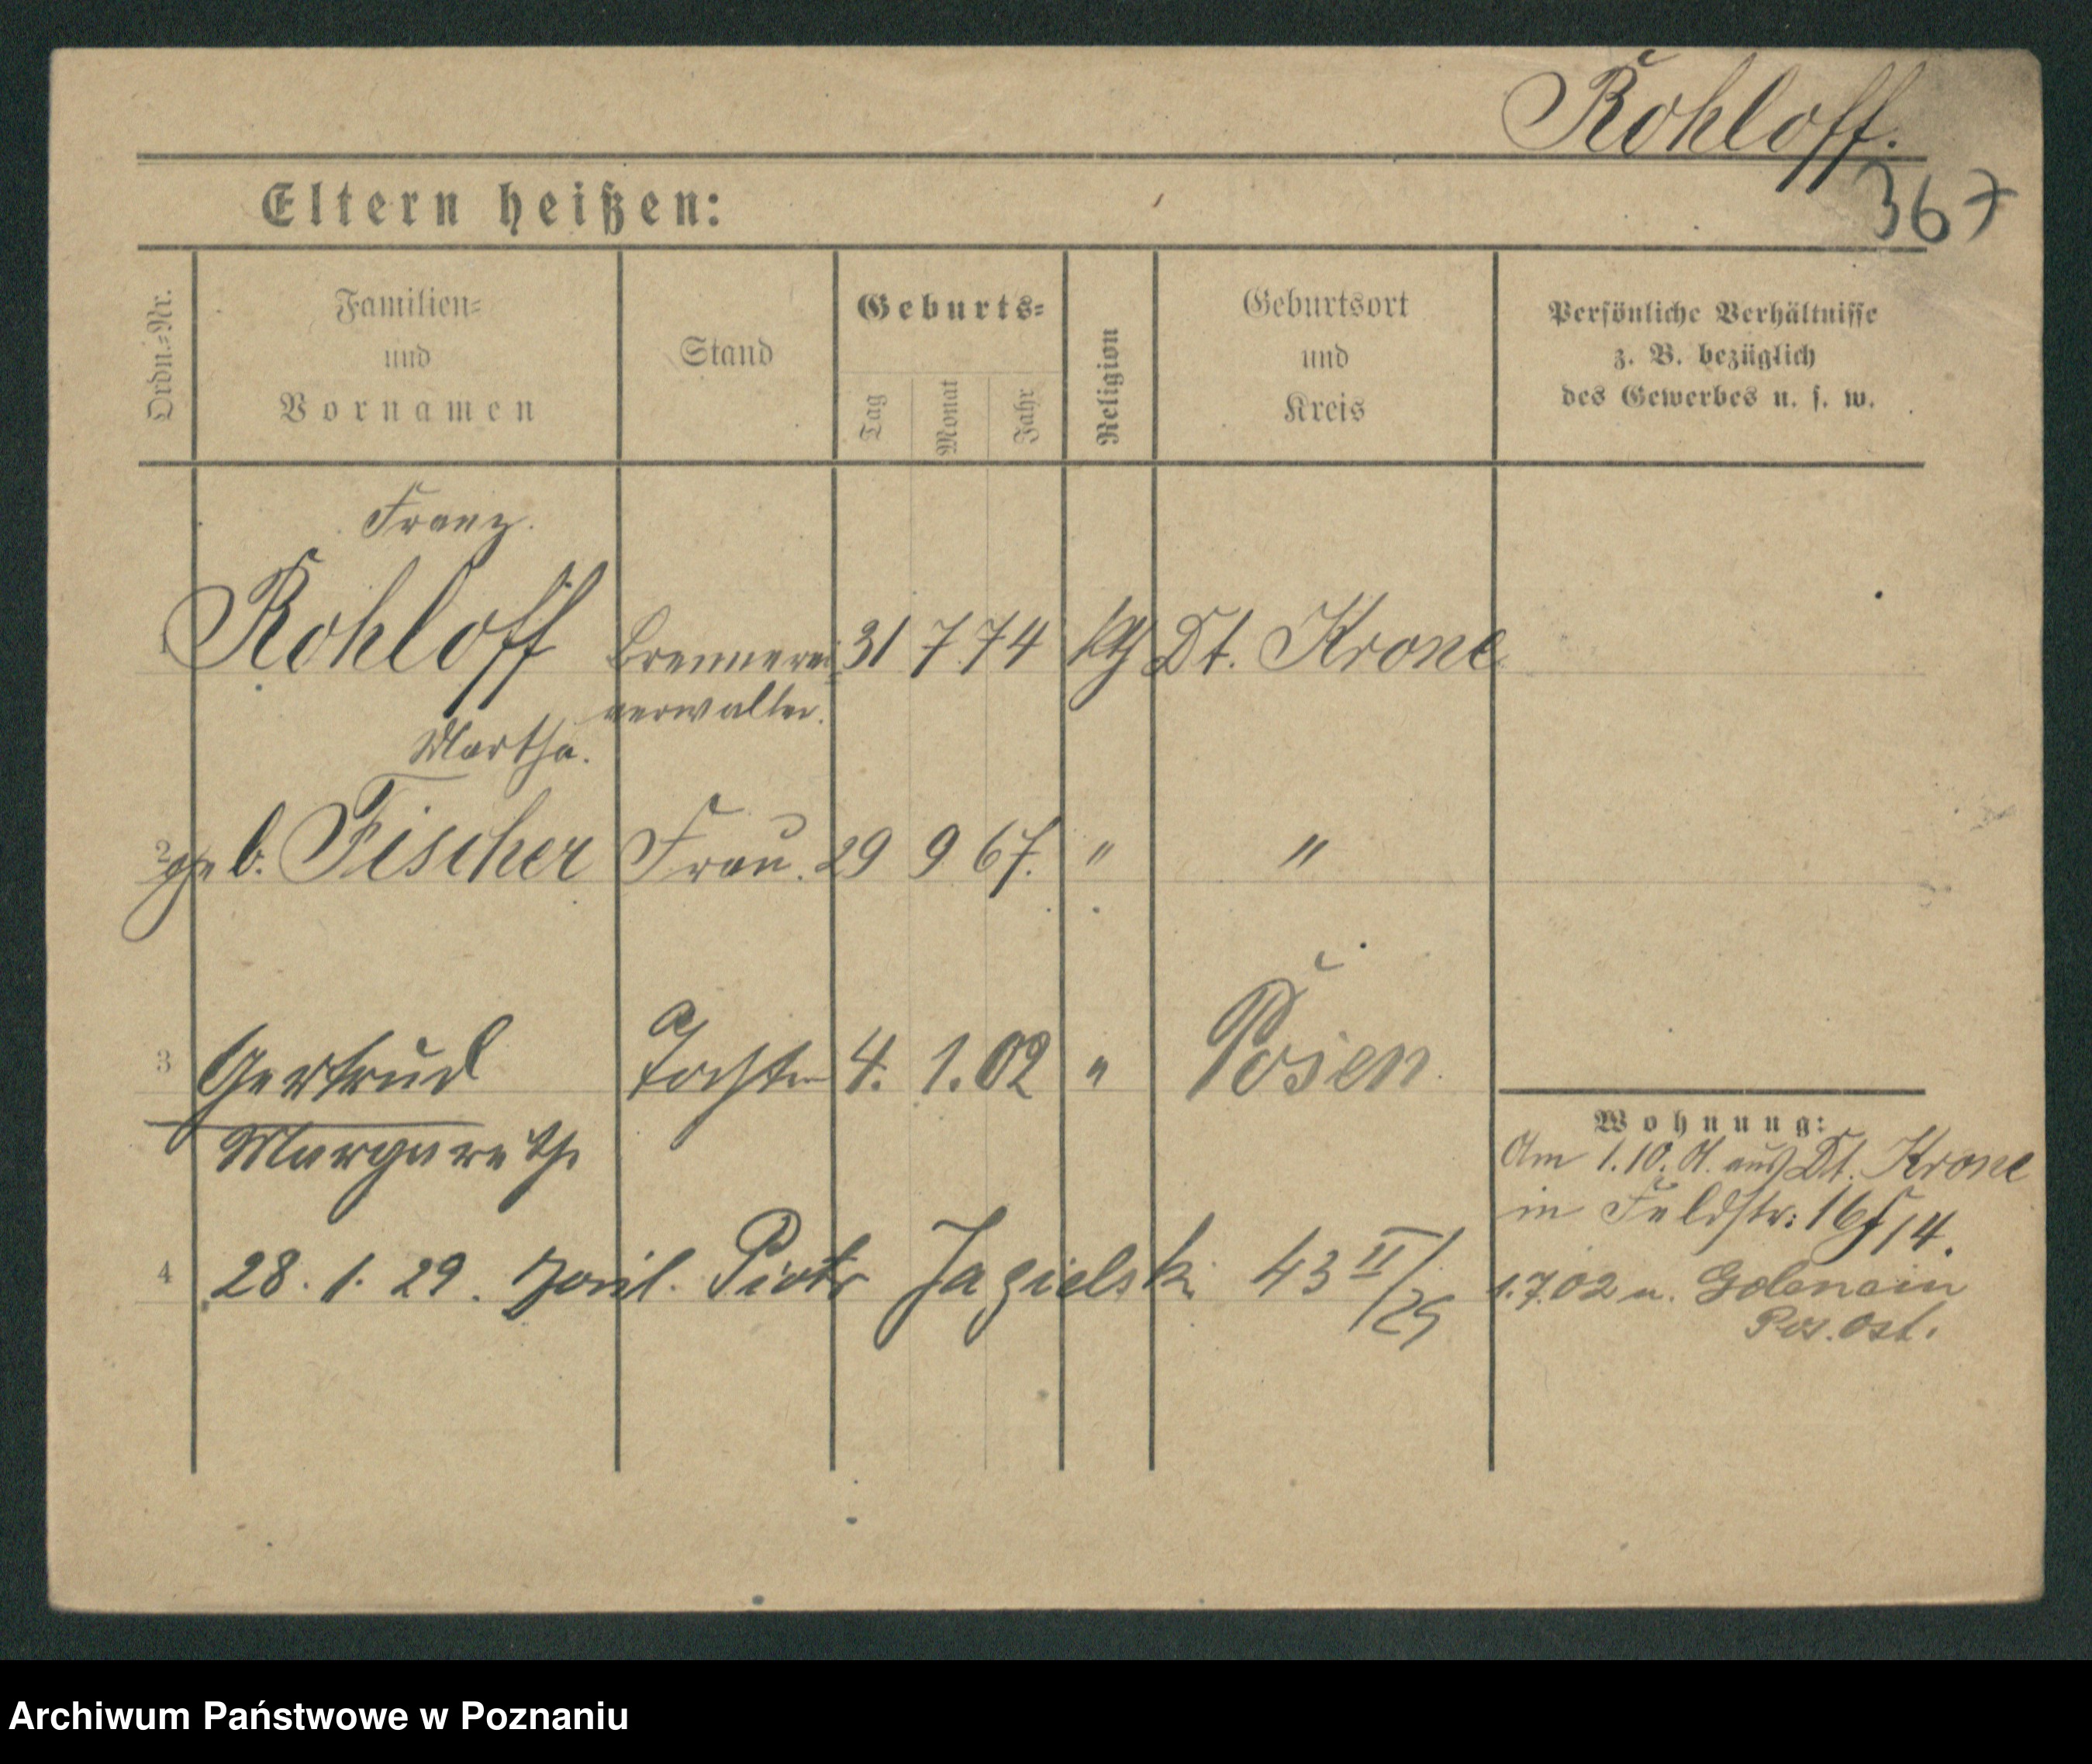 Rohloff.
367
Eltern heißen:
Ordn.-Nr.
Familien-
und
Vornamen
Stand
Geburts-
Tag
Monat
Jahr
Religion
Geburtsort
und
Kreis
Persönliche Verhältnisse
z. B. bezüglich
des Gewerbes u. s. w.
Franz.
1 Rohloff Brennerei- 31 7. 74 kth Dt. Krone
verwalter.
Martha.
2 geb. Fischer Frau. 29 9 67. " "
3 Gertrud Tochter 4. 1. 02 " Posen
Margarethe
Wohnung:
Am 1.10. 01. aus Dt. Krone
in Feldstr: 16
4 28. 1. 29. Piotr Jagielski 43 II/29
1.7.02 n.
Pos. Ost.
Archiwum Państwowe w Poznaniu